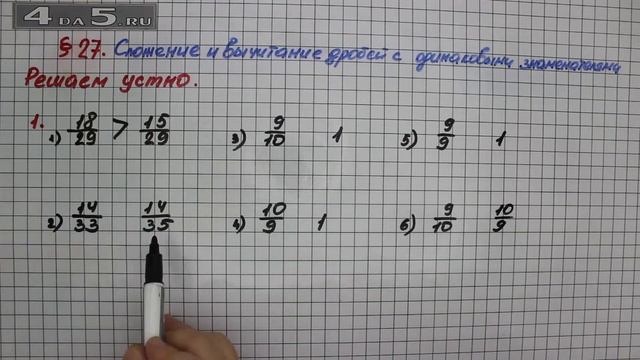 4DA5.RU
§ 27. Сложение и вычитание дробей с одинаковыми знаменателями
Решаем устно.
1. 1) 18/29 > 15/29 3) 9/10 1 5) 9/9 1
2) 14/33 14/35 4) 10/9 1 6) 9/10 10/9